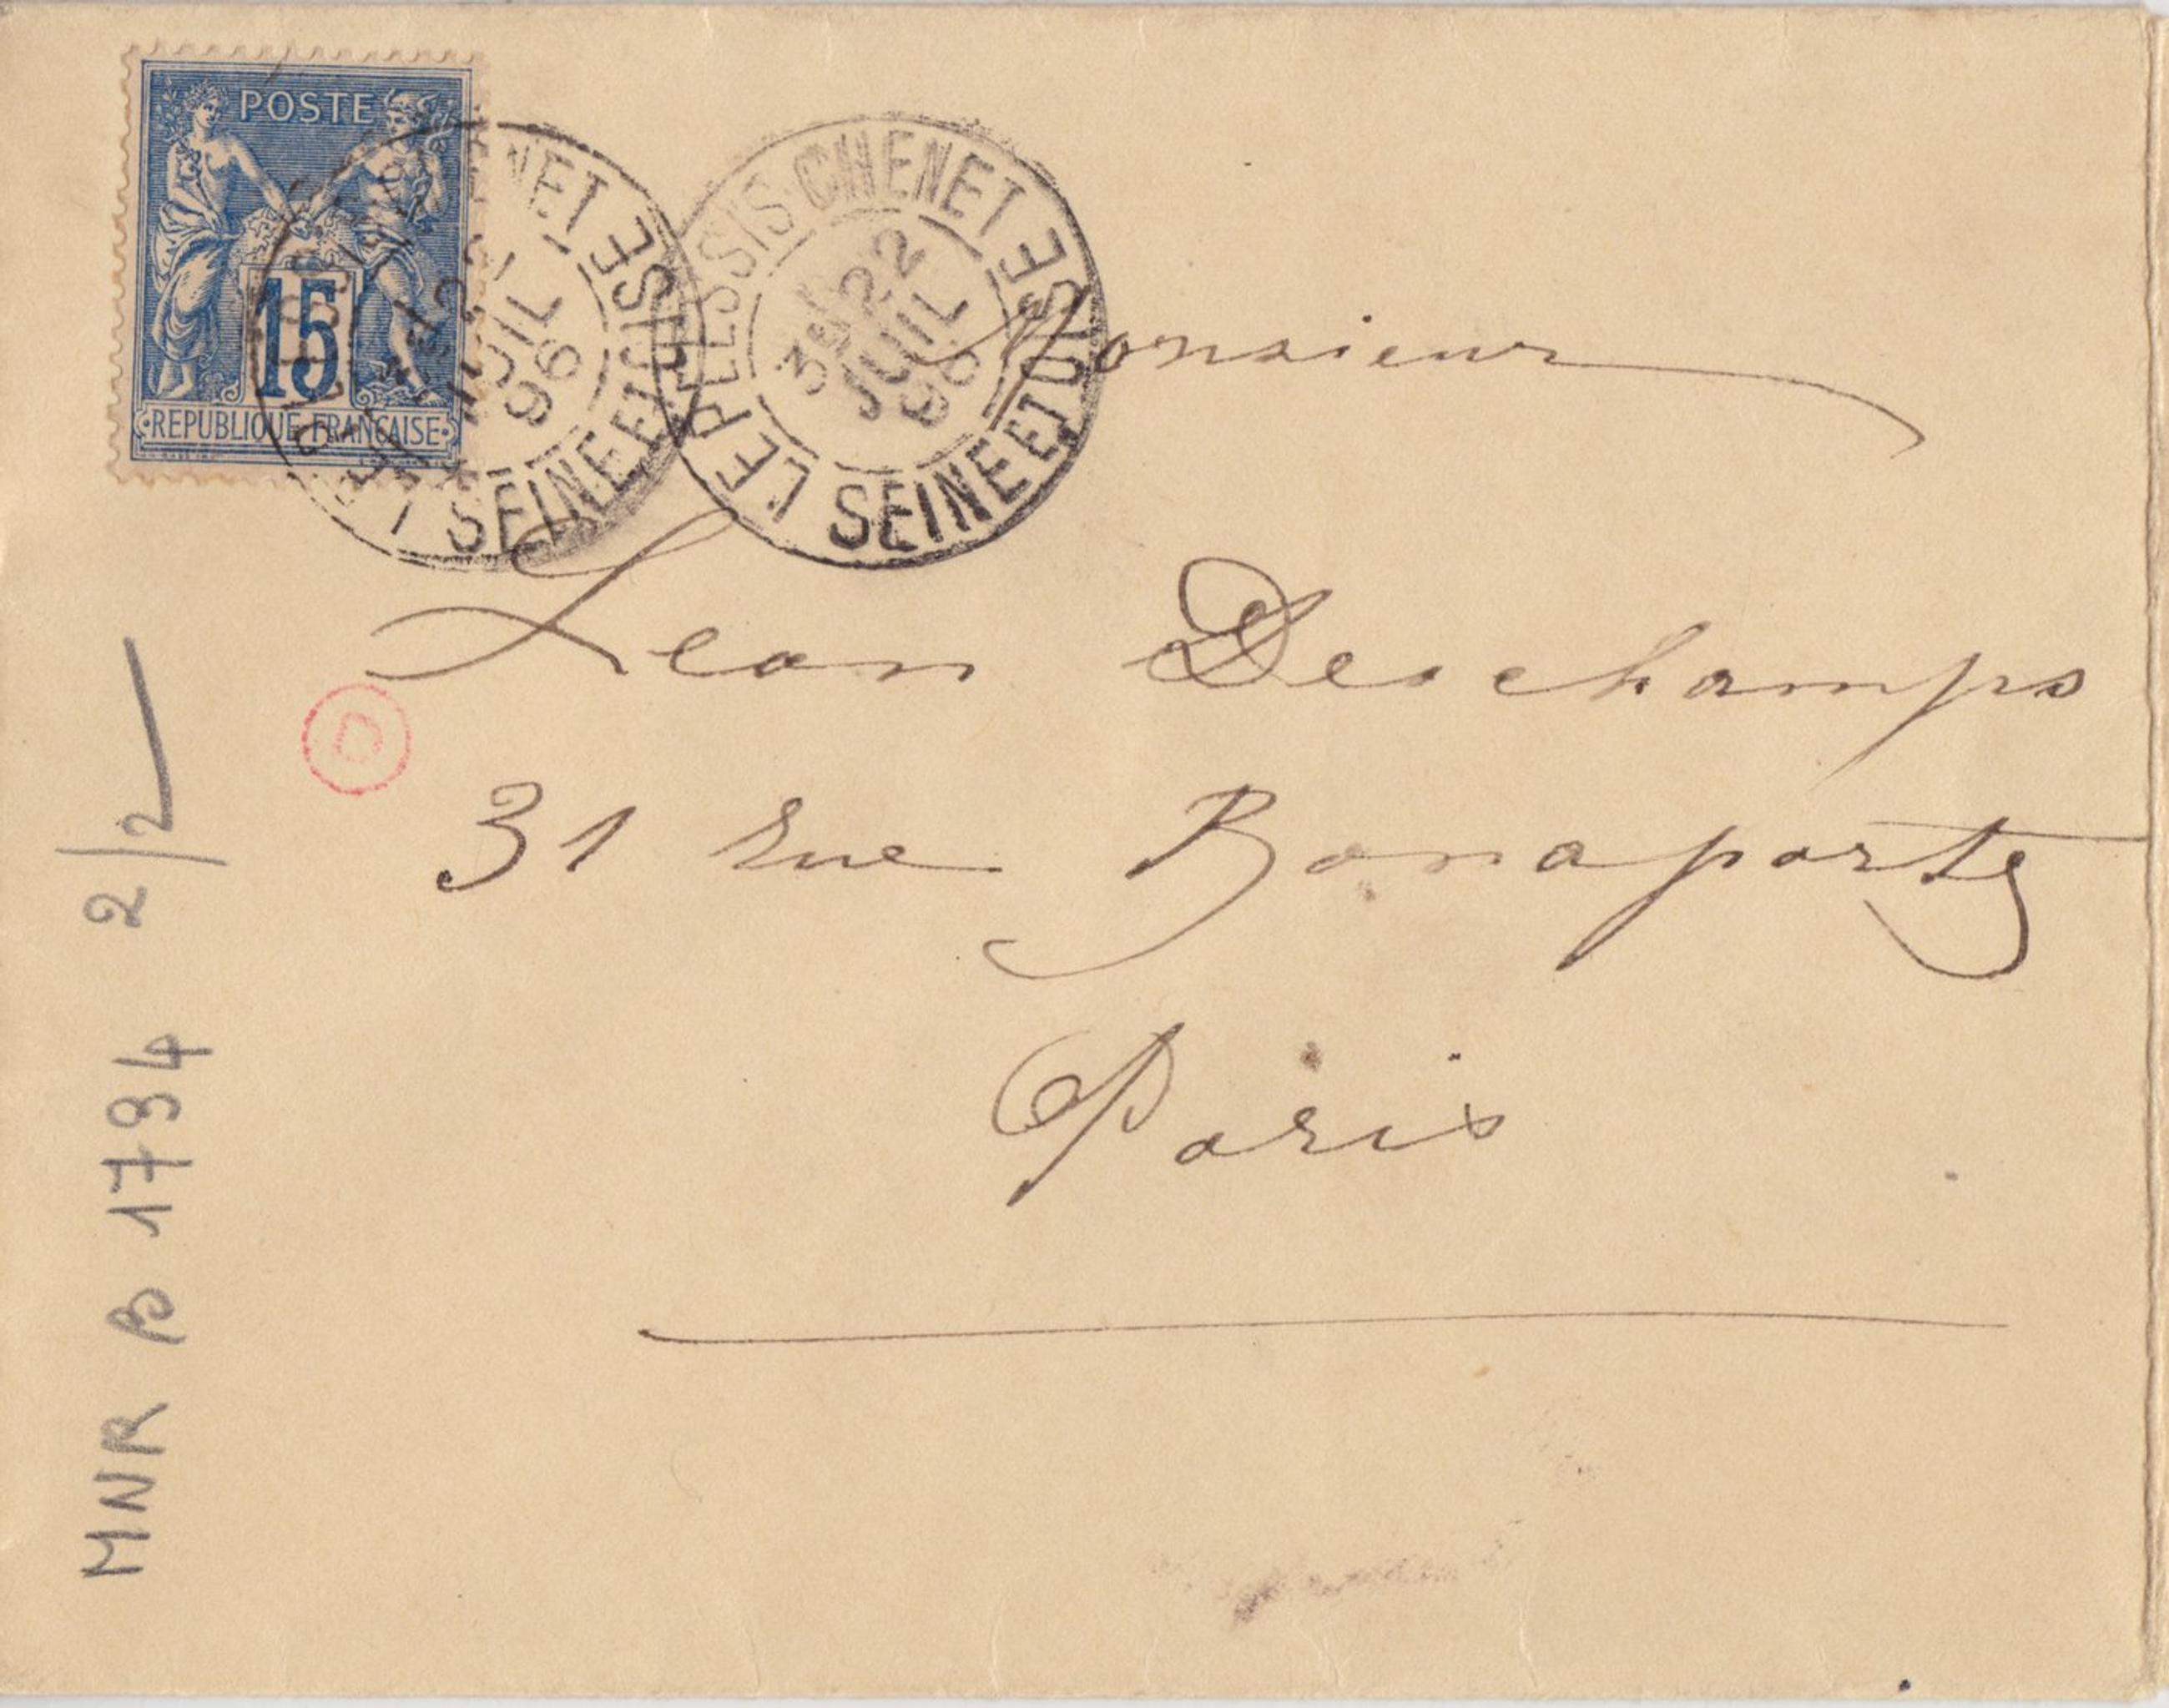 POSTE
15
REPUBLIQUE FRANÇAISE
LE PLESSIS-CHENET
3E 22
JUIL
96
SEINE ET OISE
NET
JUIL
96
SEINE ET OISE
Monsieur
Leon Deschamps
D
31 rue Bonaparte
Paris
MNR B 1794 2/2